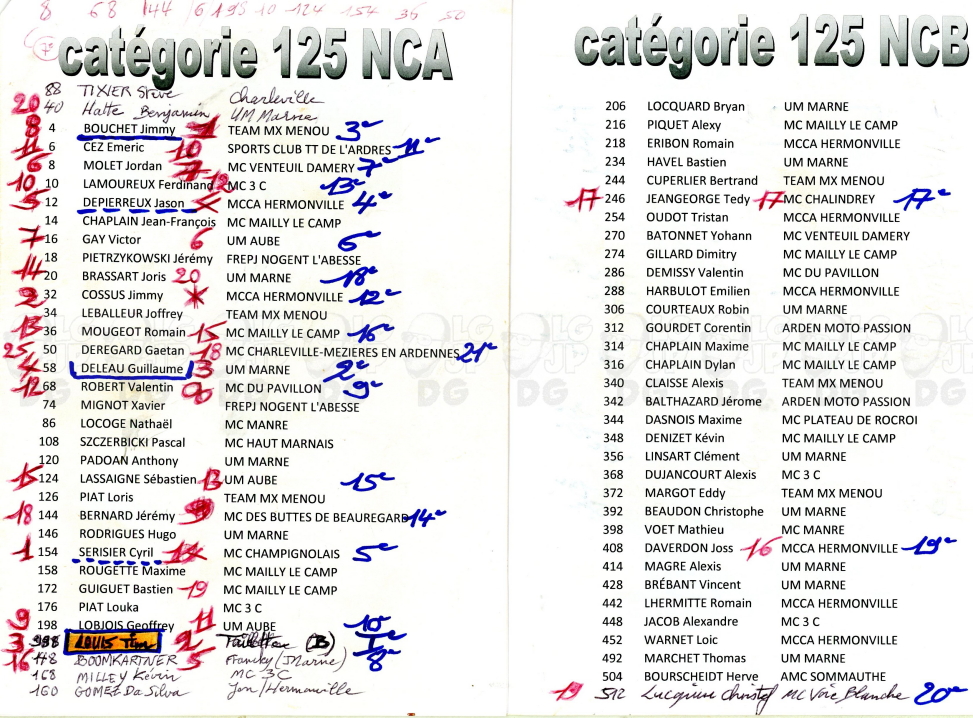 8 68 144 / 6 198 10 124 154 36 50
7e
catégorie 125 NCA
88 TIXIER Steve Charleville
20 40 Halte Benjamin UM Marne
8 4 BOUCHET Jimmy 1 TEAM MX MENOU 3e
11 6 CEZ Emeric 10 SPORTS CLUB TT DE L'ARDRES 11e
6 8 MOLET Jordan 7 MC VENTEUIL DAMERY 7e
10 10 LAMOUREUX Ferdinand 12 MC 3 C 13e
5 12 DEPIERREUX Jason MCCA HERMONVILLE 4e
14 CHAPLAIN Jean-François MC MAILLY LE CAMP
7 16 GAY Victor 6 UM AUBE 6e
18 PIETRZYKOWSKI Jérémy FREPJ NOGENT L'ABESSE
14 20 BRASSART Joris 20 UM MARNE 18e
2 32 COSSUS Jimmy MCCA HERMONVILLE 12e
34 LEBALLEUR Joffrey TEAM MX MENOU
13 36 MOUGEOT Romain 15 MC MAILLY LE CAMP 16e
25 50 DEREGARD Gaetan 18 MC CHARLEVILLE-MEZIERES EN ARDENNES 21e
4 58 DELEAU Guillaume 3 UM MARNE 2e
12 68 ROBERT Valentin MC DU PAVILLON 9e
74 MIGNOT Xavier FREPJ NOGENT L'ABESSE
86 LOCOGE Nathaël MC MANRE
108 SZCZERBICKI Pascal MC HAUT MARNAIS
120 PADOAN Anthony UM MARNE
15 124 LASSAIGNE Sébastien 13 UM AUBE 15e
126 PIAT Loris TEAM MX MENOU
18 144 BERNARD Jérémy MC DES BUTTES DE BEAUREGARD 14e
146 RODRIGUES Hugo UM MARNE
1 154 SERISIER Cyril 14 MC CHAMPIGNOLAIS 5e
158 ROUGETTE Maxime MC MAILLY LE CAMP
172 GUIGUET Bastien 19 MC MAILLY LE CAMP
176 PIAT Louka MC 3 C
9 198 LOBJOIS Geoffrey 11 UM AUBE 10e
3 LOUIS Tim 2 (B) 1e
16 118 BOOMKARTNER 5 Francky (Marne) 8e
168 MILLEY Kévin MC 3C
160 GOMEZ Da Silva Jon/Hermonville
catégorie 125 NCB
206 LOCQUARD Bryan UM MARNE
216 PIQUET Alexy MC MAILLY LE CAMP
218 ERIBON Romain MCCA HERMONVILLE
234 HAVEL Bastien UM MARNE
244 CUPERLIER Bertrand TEAM MX MENOU
17 246 JEANGEORGE Tedy 17 MC CHALINDREY 17e
254 OUDOT Tristan MCCA HERMONVILLE
270 BATONNET Yohann MC VENTEUIL DAMERY
274 GILLARD Dimitry MC MAILLY LE CAMP
286 DEMISSY Valentin MC DU PAVILLON
288 HARBULOT Emilien MCCA HERMONVILLE
306 COURTEAUX Robin UM MARNE
312 GOURDET Corentin ARDEN MOTO PASSION
314 CHAPLAIN Maxime MC MAILLY LE CAMP
316 CHAPLAIN Dylan MC MAILLY LE CAMP
340 CLAISSE Alexis TEAM MX MENOU
342 BALTHAZARD Jérome ARDEN MOTO PASSION
344 DASNOIS Maxime MC PLATEAU DE ROCROI
348 DENIZET Kévin MC MAILLY LE CAMP
356 LINSART Clément UM MARNE
368 DUJANCOURT Alexis MC 3 C
372 MARGOT Eddy TEAM MX MENOU
392 BEAUDON Christophe UM MARNE
398 VOET Mathieu MC MANRE
408 DAVERDON Joss 16 MCCA HERMONVILLE 19e
414 MAGRE Alexis UM MARNE
428 BRÉBANT Vincent UM MARNE
442 LHERMITTE Romain MCCA HERMONVILLE
448 JACOB Alexandre MC 3 C
452 WARNET Loic MCCA HERMONVILLE
492 MARCHET Thomas UM MARNE
504 BOURSCHEIDT Herve AMC SOMMAUTHE
19 512 Christof MC Voie Blanche 20e